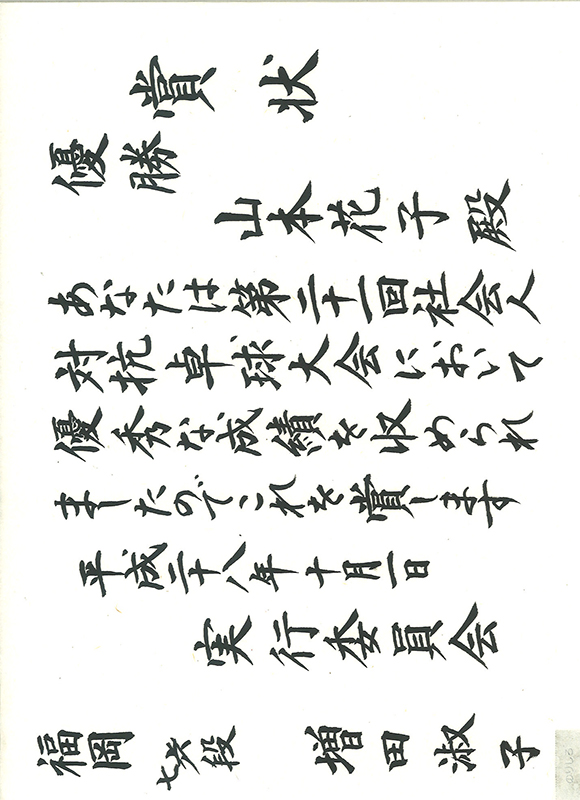 賞状
優勝
山本花子殿
あなたは第二十一回社会人
対抗卓球大会において
優秀な成績を収められ
ましたのでこれを賞します
平成二十八年十月一日
実行委員会
福岡 七、六段 増田淑子